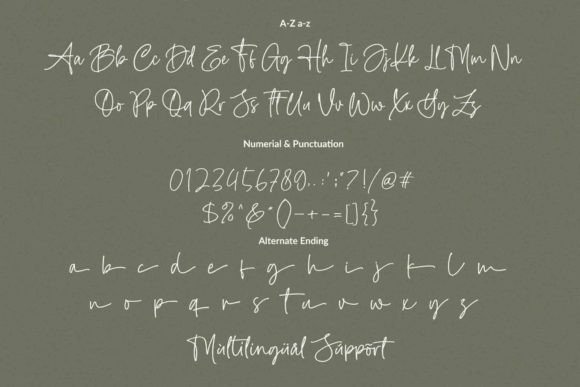 A-Z a-z
Aa Bb Cc Dd Ee Ff Gg Hh Ii Jj Kk Ll Mm Nn
Oo Pp Qq Rr Ss Tt Uu Vv Ww Xx Yy Zz
Numerial & Punctuation
0123456789..:';"?!/@#
$%^&*()-+-=[]{}
Alternate Ending
a b c d e f g h i j k l m
n o p q r s t u v w x y z
Mùltilingüâl Sùppõrt